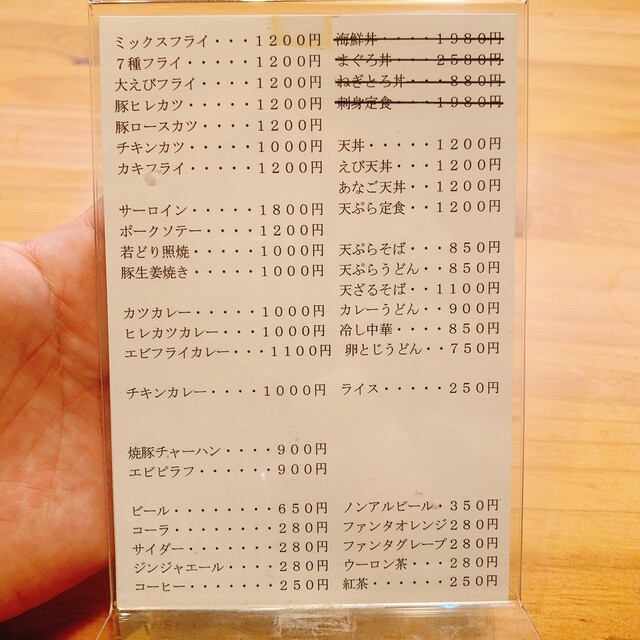 ミックスフライ・・・１２００円
７種フライ・・・・・１２００円
大えびフライ・・・・１２００円
豚ヒレカツ・・・・・１２００円
豚ロースカツ・・・・１２００円
チキンカツ・・・・・１０００円
カキフライ・・・・・１２００円
サーロイン・・・・・１８００円
ポークソテー・・・・１２００円
若どり照焼・・・・・１０００円
豚生姜焼き・・・・・１０００円
カツカレー・・・・・１０００円
ヒレカツカレー・・・１０００円
エビフライカレー・・・１１００円
チキンカレー・・・・１０００円
焼豚チャーハン・・・・９００円
エビピラフ・・・・・・９００円
ビール・・・・・・・・６５０円
コーラ・・・・・・・・２８０円
サイダー・・・・・・・２８０円
ジンジャエール・・・・２８０円
コーヒー・・・・・・・２５０円
海鮮丼・・・・・１９８０円
まぐろ丼・・・・２５８０円
ねぎとろ丼・・・・８８０円
刺身定食・・・・１９８０円
天丼・・・・・１２００円
えび天丼・・・１２００円
あなご天丼・・１２００円
天ぷら定食・・１２００円
天ぷらそば・・・８５０円
天ぷらうどん・・８５０円
天ざるそば・・１１００円
カレーうどん・・９００円
冷し中華・・・・８５０円
卵とじうどん・・７５０円
ライス・・・・・２５０円
ノンアルビール・３５０円
ファンタオレンジ２８０円
ファンタグレープ２８０円
ウーロン茶・・・２８０円
紅茶・・・・・・２５０円